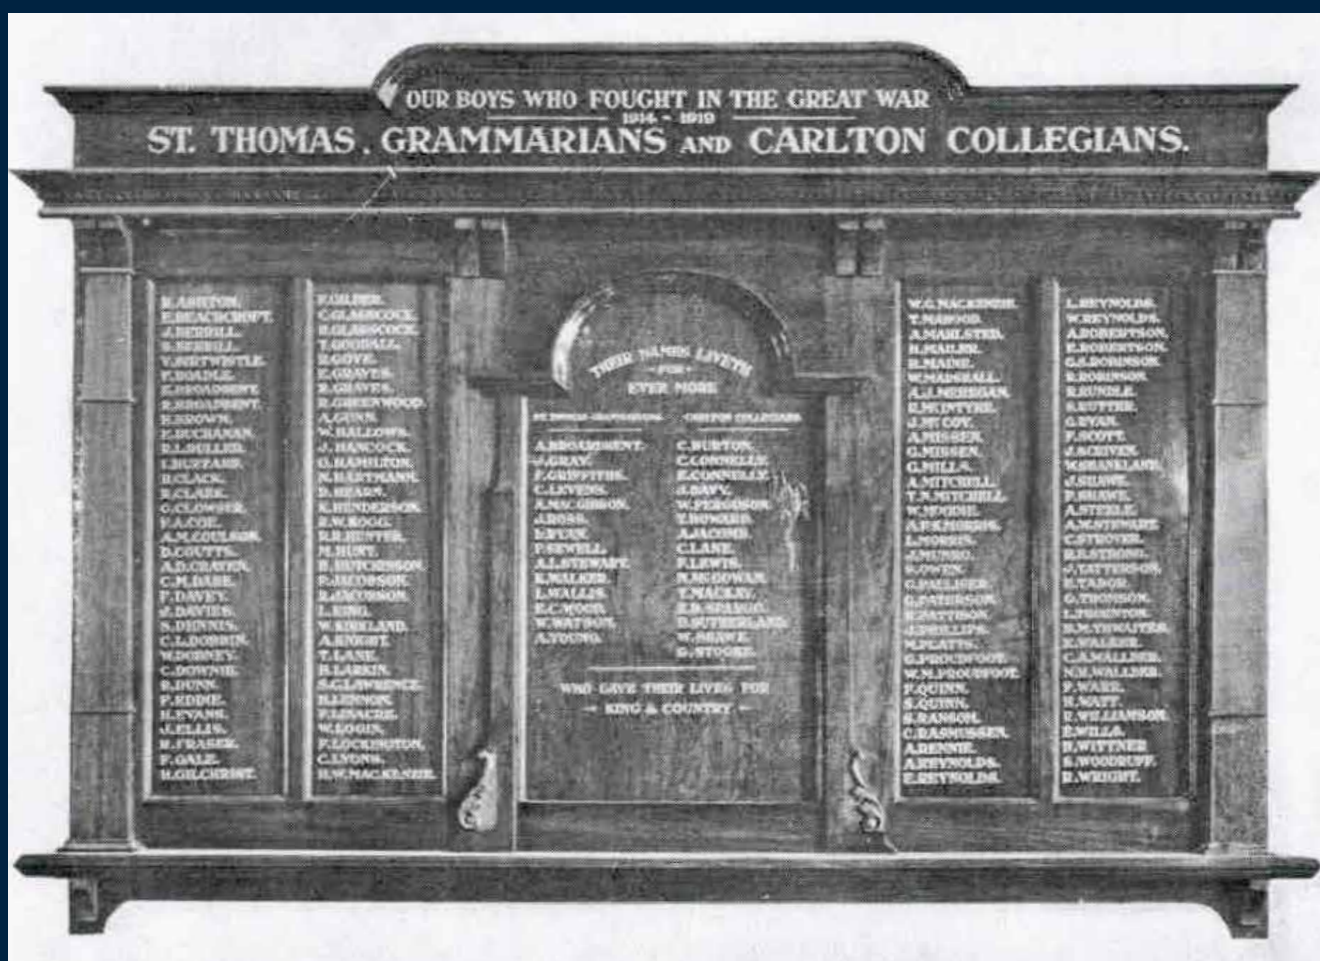 OUR BOYS WHO FOUGHT IN THE GREAT WAR
1914 - 1919
ST. THOMAS. GRAMMARIANS AND CARLTON COLLEGIANS.
R. ASHTON.
E. BEACHCROFT.
J. BERRILL.
S. BERRILL.
V. BIRTWISTLE.
F. BOADLE.
E. BROADBENT.
R. BROADBENT.
E. BROWN.
E. BUCHANAN.
R. L. BULLED.
H. CLACK.
R. CLARK.
G. CLOWSER.
F. A. COE.
A. M. COULSON.
D. COUTTS.
A. D. CRAVEN.
C. M. DARE.
F. DAVEY.
J. DAVIES.
S. DENNIS.
C. L. DOBBIN.
W. DOBNEY.
C. DOWNIE.
R. DUNN.
F. EDDIE.
H. EVANS.
J. ELLIS.
R. FRASER.
F. GALE.
H. GILCHRIST.
F. GILDER.
C. GLASSCOCK.
R. GLASSCOCK.
T. GOODALL.
R. GOVE.
E. GRAVES.
R. GRAVES.
R. GREENWOOD.
A. GUNN.
W. HALLOWS.
J. HANCOCK.
G. HAMILTON.
N. HARTMANN.
D. HEARN.
K. HENDERSON.
R. W. HOGG.
R. R. HUNTER.
M. HUNT.
B. HUTCHISSON.
P. JACOBSON.
R. JACOBSON.
L. KING.
W. KIRKLAND.
A. KNIGHT.
T. LANE.
B. LARKIN.
S. G. LAWRENCE.
B. LENNON.
F. LINACRE.
W. LOGIN.
F. LOCKINGTON.
C. LYONS.
H. W. MACKENZIE.
THEIR NAMES LIVETH
FOR
EVER MORE
ST. THOMAS GRAMMARIANS.
CARLTON COLLEGIANS.
A. BROADBENT.
J. GRAY.
F. GRIFFITHS.
C. LEVENS.
A. MACGIBBON.
J. ROSS.
D. RYAN.
P. SEWELL.
A. L. STEWART.
K. WALKER.
L. WALLIS.
E. C. WOOD.
W. WATSON.
A. YOUNG.
C. BURTON.
C. CONNELLY.
E. CONNELLY.
J. DAVY.
W. FERGUSON.
T. HOWARD.
A. JACOMB.
C. LANE.
F. LEWIS.
N. McGOWAN.
T. MACKAY.
E. D. SPARGO.
D. SUTHERLAND.
W. SHAWE.
G. STOOKE.
WHO GAVE THEIR LIVES FOR
KING & COUNTRY
W. G. MACKENZIE.
T. MAHOOD.
A. MAHLSTED.
H. MAILER.
R. MAINE.
W. MARSHALL.
A. J. MEHEGAN.
R. McINTYRE.
J. McCOY.
A. MISSEN.
G. MISSEN.
G. MILLS.
A. MITCHELL.
T. N. MITCHELL
W. MOODIE.
A. F. S. MORRIS.
L. MORRIS.
J. MUNRO.
S. OWEN.
G. PALLISER.
G. PATERSON.
R. PATTISON.
J. PHILLIPS.
N. PLATTS.
G. PROUDFOOT.
W. M. PROUDFOOT.
F. QUINN.
S. QUINN.
S. RANSOM.
C. RASMUSSEN.
A. RENNIE.
A. REYNOLDS.
E. REYNOLDS.
L. REYNOLDS.
W. REYNOLDS.
A. ROBERTSON.
E. ROBERTSON.
G. S. ROBINSON.
R. ROBINSON.
R. RUNDLE.
S. RUTTER.
G. RYAN.
F. SCOTT.
J. SCRIVEN.
W. SHANKLAND.
J. SHAWE.
P. SHAWE.
A. STEELE.
A. W. STEWART.
C. STROVER.
R. B. STRONG.
J. TATTERSON.
E. TABOR.
G. THOMSON.
L. THORNTON.
B. M. THWAITES.
E. WALKER.
C. A. WALLDER.
N. H. WALLDER.
F. WARR.
H. WATT.
E. WILLIAMSON.
E. WILLS.
B. WITTNER
S. WOODRUFF.
R. WRIGHT.